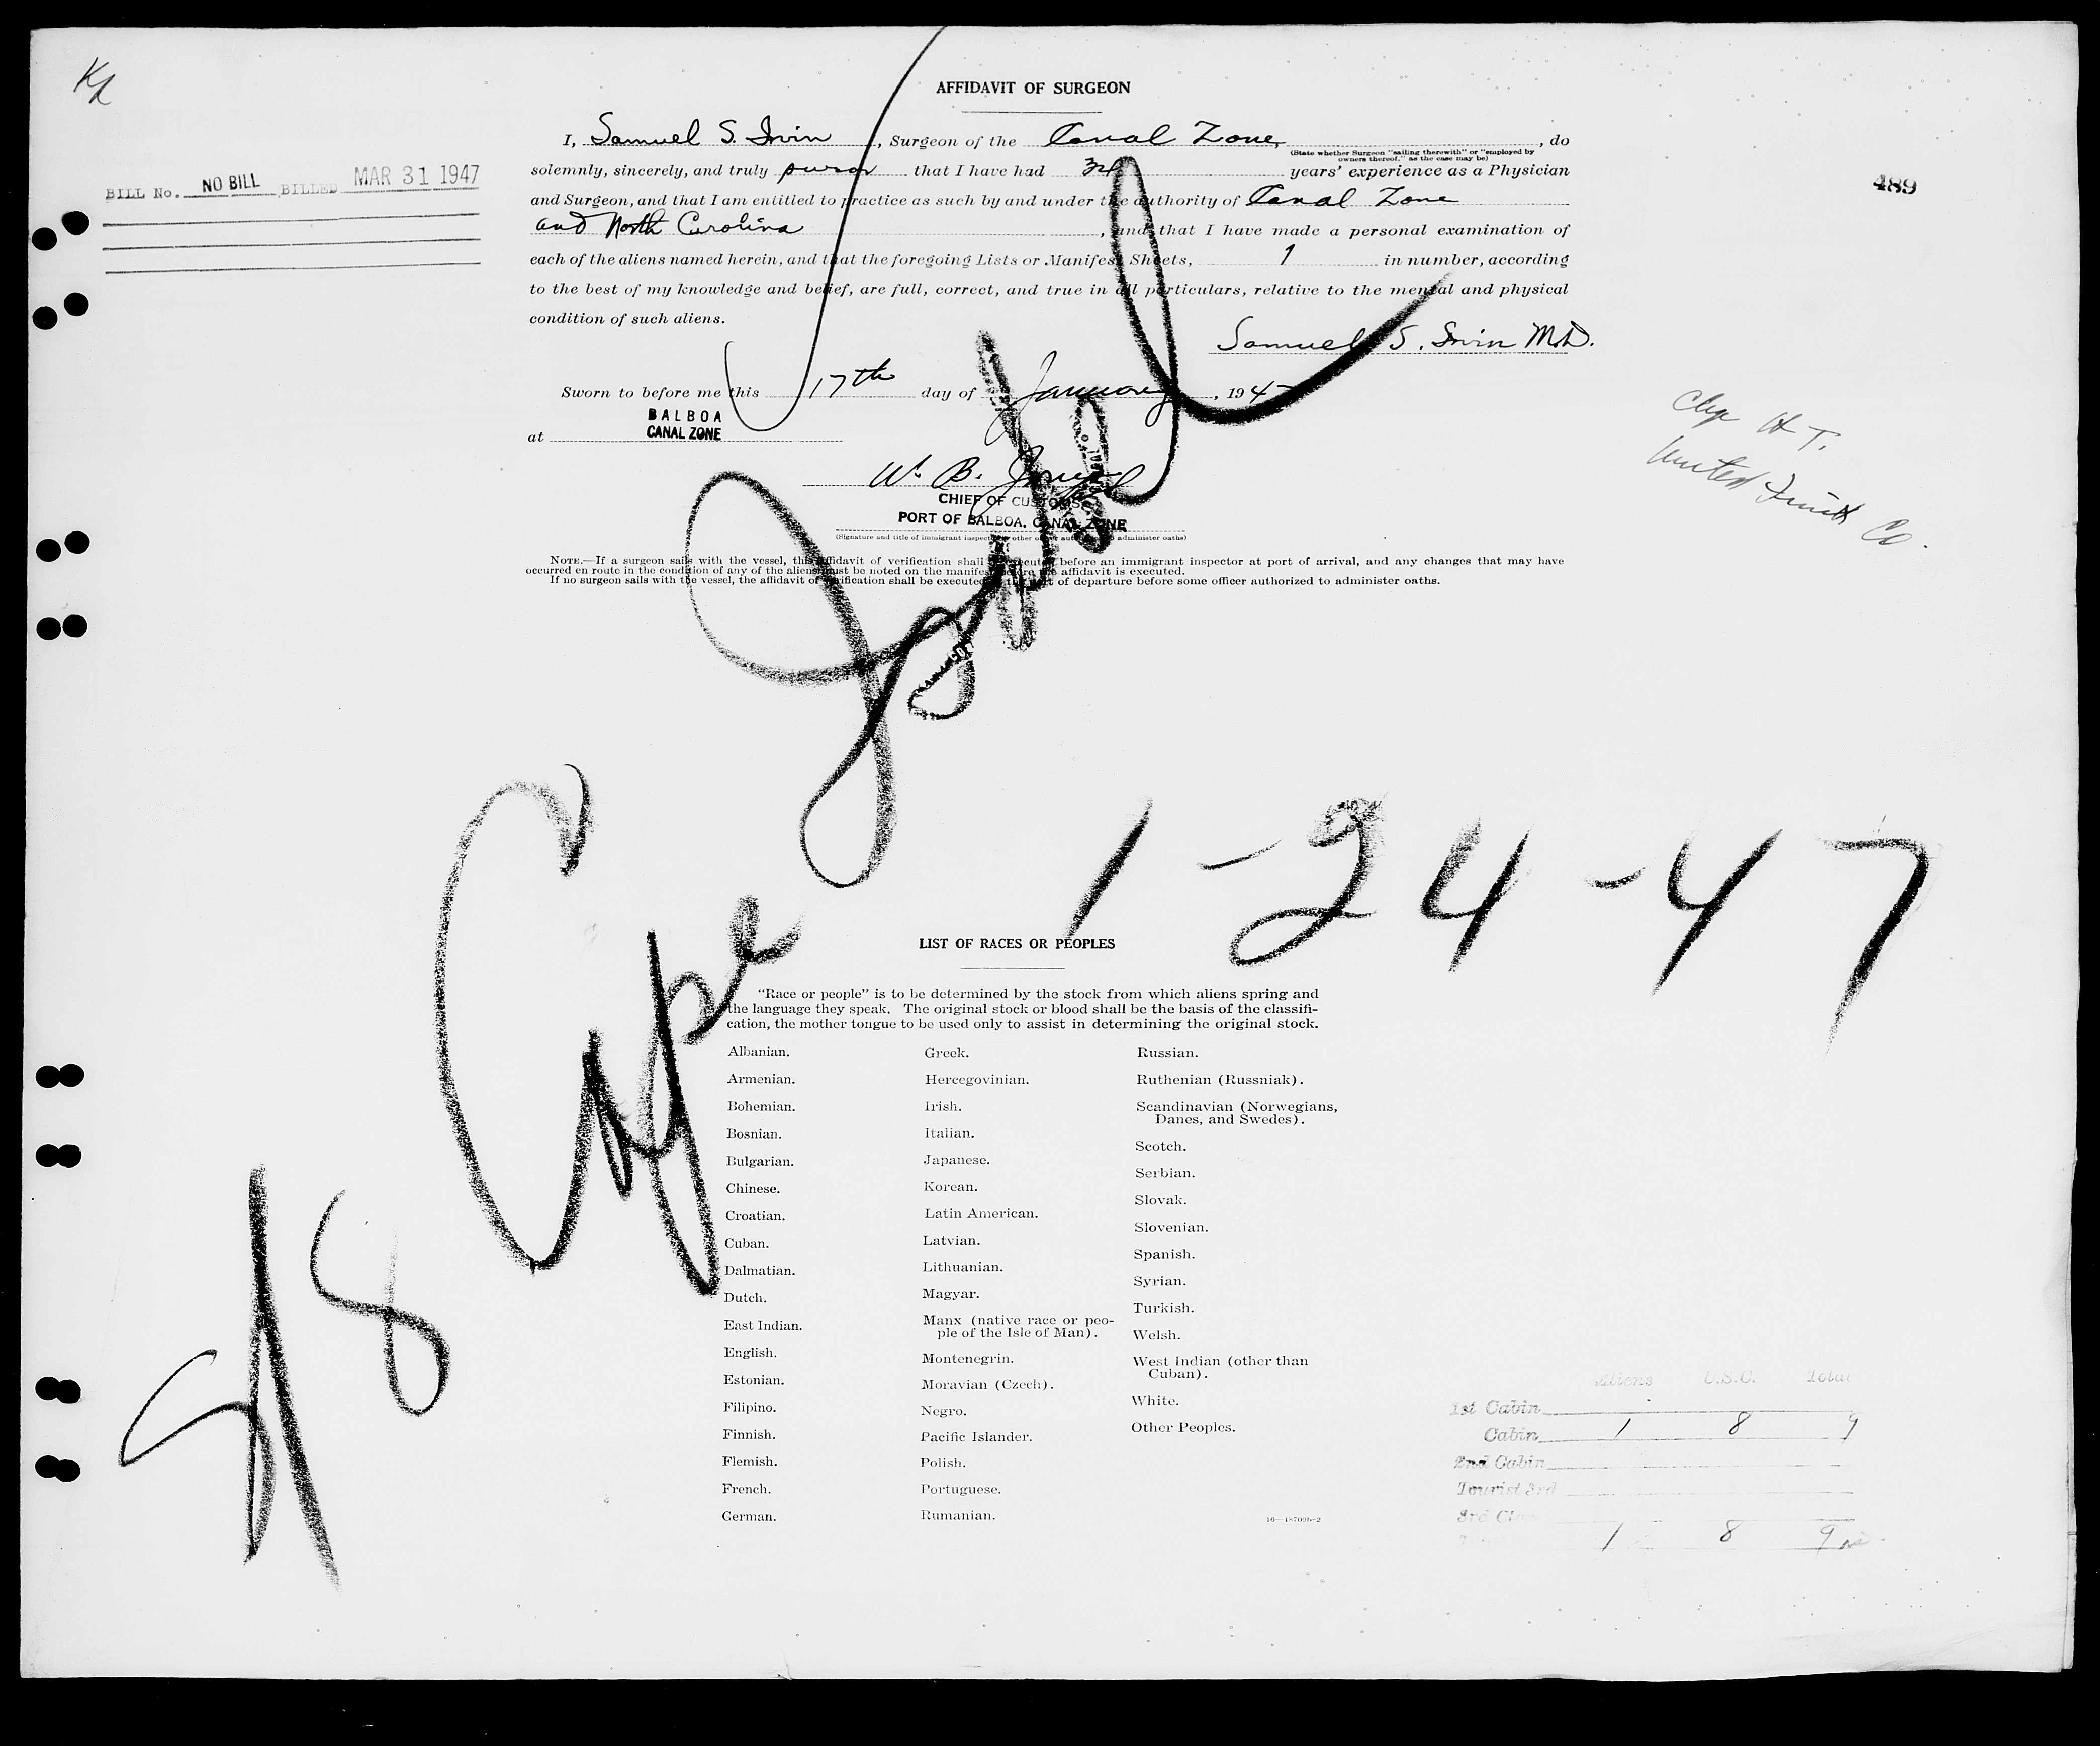 AFFIDAVIT OF SURGEON
I, Samuel S. Irvin, Surgeon of the Canal Zone, do
(State whether Surgeon "sailing therewith" or "employed by
owners thereof," as the case may be)
solemnly, sincerely, and truly swear that I have had 34 years' experience as a Physician
and Surgeon, and that I am entitled to practice as such by and under the authority of Canal Zone
and North Carolina, and that I have made a personal examination of
each of the aliens named herein, and that the foregoing Lists or Manifest Sheets, 1 in number, according
to the best of my knowledge and belief, are full, correct, and true in all particulars, relative to the mental and physical
condition of such aliens.
Samuel S. Irvin M.D.
BILL No. NO BILL BILLED MAR 31 1947
489
Sworn to before me this 17th day of January, 1947
at BALBOA
CANAL ZONE
W. B.
CHIEF OF CUSTOMS
PORT OF BALBOA, CANAL ZONE
(Signature and title of immigrant inspector or other officer authorized to administer oaths)
H T.
United Fruit Co.
NOTE.—If a surgeon sails with the vessel, this affidavit of verification shall be executed before an immigrant inspector at port of arrival, and any changes that may have
occurred en route in the condition of any of the aliens must be noted on the manifest before the affidavit is executed.
If no surgeon sails with the vessel, the affidavit of verification shall be executed at the port of departure before some officer authorized to administer oaths.
S/S Cape
1-24-47
LIST OF RACES OR PEOPLES
"Race or people" is to be determined by the stock from which aliens spring and
the language they speak. The original stock or blood shall be the basis of the classifi-
cation, the mother tongue to be used only to assist in determining the original stock.
Albanian.
Armenian.
Bohemian.
Bosnian.
Bulgarian.
Chinese.
Croatian.
Cuban.
Dalmatian.
Dutch.
East Indian.
English.
Estonian.
Filipino.
Finnish.
Flemish.
French.
German.
Greek.
Hercegovinian.
Irish.
Italian.
Japanese.
Korean.
Latin American.
Latvian.
Lithuanian.
Magyar.
Manx (native race or peo-
ple of the Isle of Man).
Montenegrin.
Moravian (Czech).
Negro.
Pacific Islander.
Polish.
Portuguese.
Rumanian.
Russian.
Ruthenian (Russniak).
Scandinavian (Norwegians,
Danes, and Swedes).
Scotch.
Serbian.
Slovak.
Slovenian.
Spanish.
Syrian.
Turkish.
Welsh.
West Indian (other than
Cuban).
White.
Other Peoples.
16—18709b-2
Aliens U.S.C. Total
1st Cabin
Cabin 1 8 9
2nd Cabin
Tourist 3rd
3rd
1 8 9